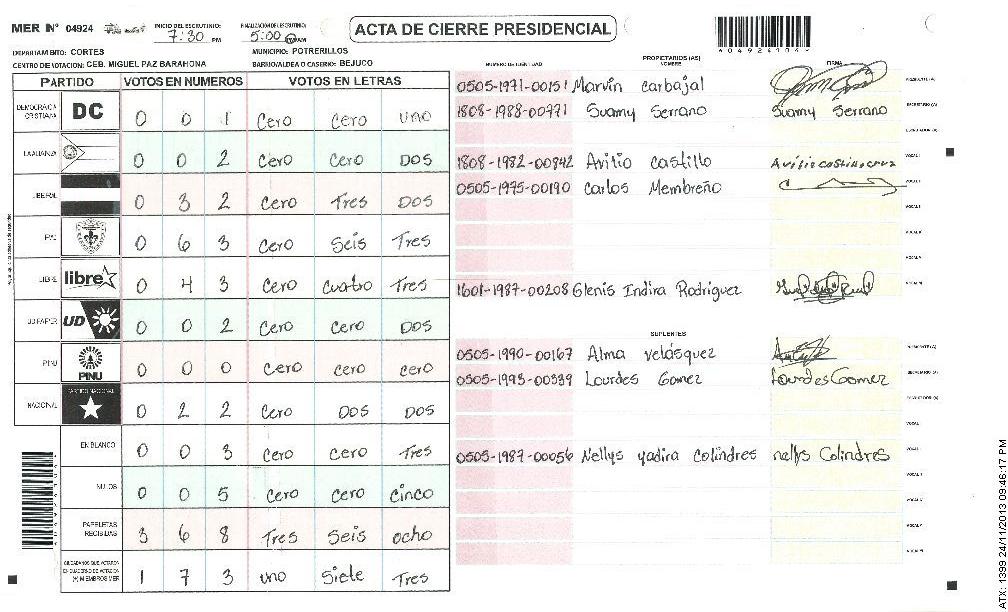 MER Nº 04924 INICIO DEL ESCRUTINIO: 7:30 PM FINALIZACION DEL ESCRUTINIO: 5:00 PM/AM ACTA DE CIERRE PRESIDENCIAL
DEPARTAMENTO: CORTES MUNICIPIO: POTRERILLOS
CENTRO DE VOTACION: CEB. MIGUEL PAZ BARAHONA BARRIO/ALDEA O CASERIO: BEJUCO
PARTIDO VOTOS EN NUMEROS VOTOS EN LETRAS
DEMOCRACIA CRISTIANA DC 0 0 1 Cero Cero uno
LA ALIANZA 0 0 2 Cero Cero DOS
LIBERAL 0 3 2 Cero Tres DOS
PAC 0 6 3 Cero Seis Tres
LIBRE libre 0 4 3 Cero cuatro Tres
UD FAPER UD 0 0 2 Cero Cero DOS
PINU PINU 0 0 0 Cero cero cero
NACIONAL PARTIDO NACIONAL 0 2 2 Cero DOS DOS
EN BLANCO 0 0 3 Cero Cero Tres
NULOS 0 0 5 Cero Cero Cinco
PAPELETAS RECIBIDAS 3 6 8 Tres Seis ocho
CIUDADANOS QUE VOTARON EN CUADERNO DE VOTACION (+) MIEMBROS MER 1 7 3 uno Siete Tres
NUMERO DE IDENTIDAD PROPIETARIOS (AS) NOMBRE FIRMA
0505-1971-00151 Marvin Carbajal
1808-1988-00771 Suamy Serrano Suamy Serrano
SECRETARIO (A)
ESCRUTADOR (A)
1808-1982-00842 Avilio castillo Avilio castillo cruz
0505-1975-00190 Carlos Membreño
1601-1987-00208 Glenis Indira Rodriguez
SUPLENTES
0505-1990-00167 Alma velásquez
0505-1993-00539 Lourdes Gomez Lourdes Gomez
SECRETARIO (A)
0505-1987-00056 Nellys yadira colindres nellys Colindres
ATX: 1399 24/11/2013 09:46:17 PM